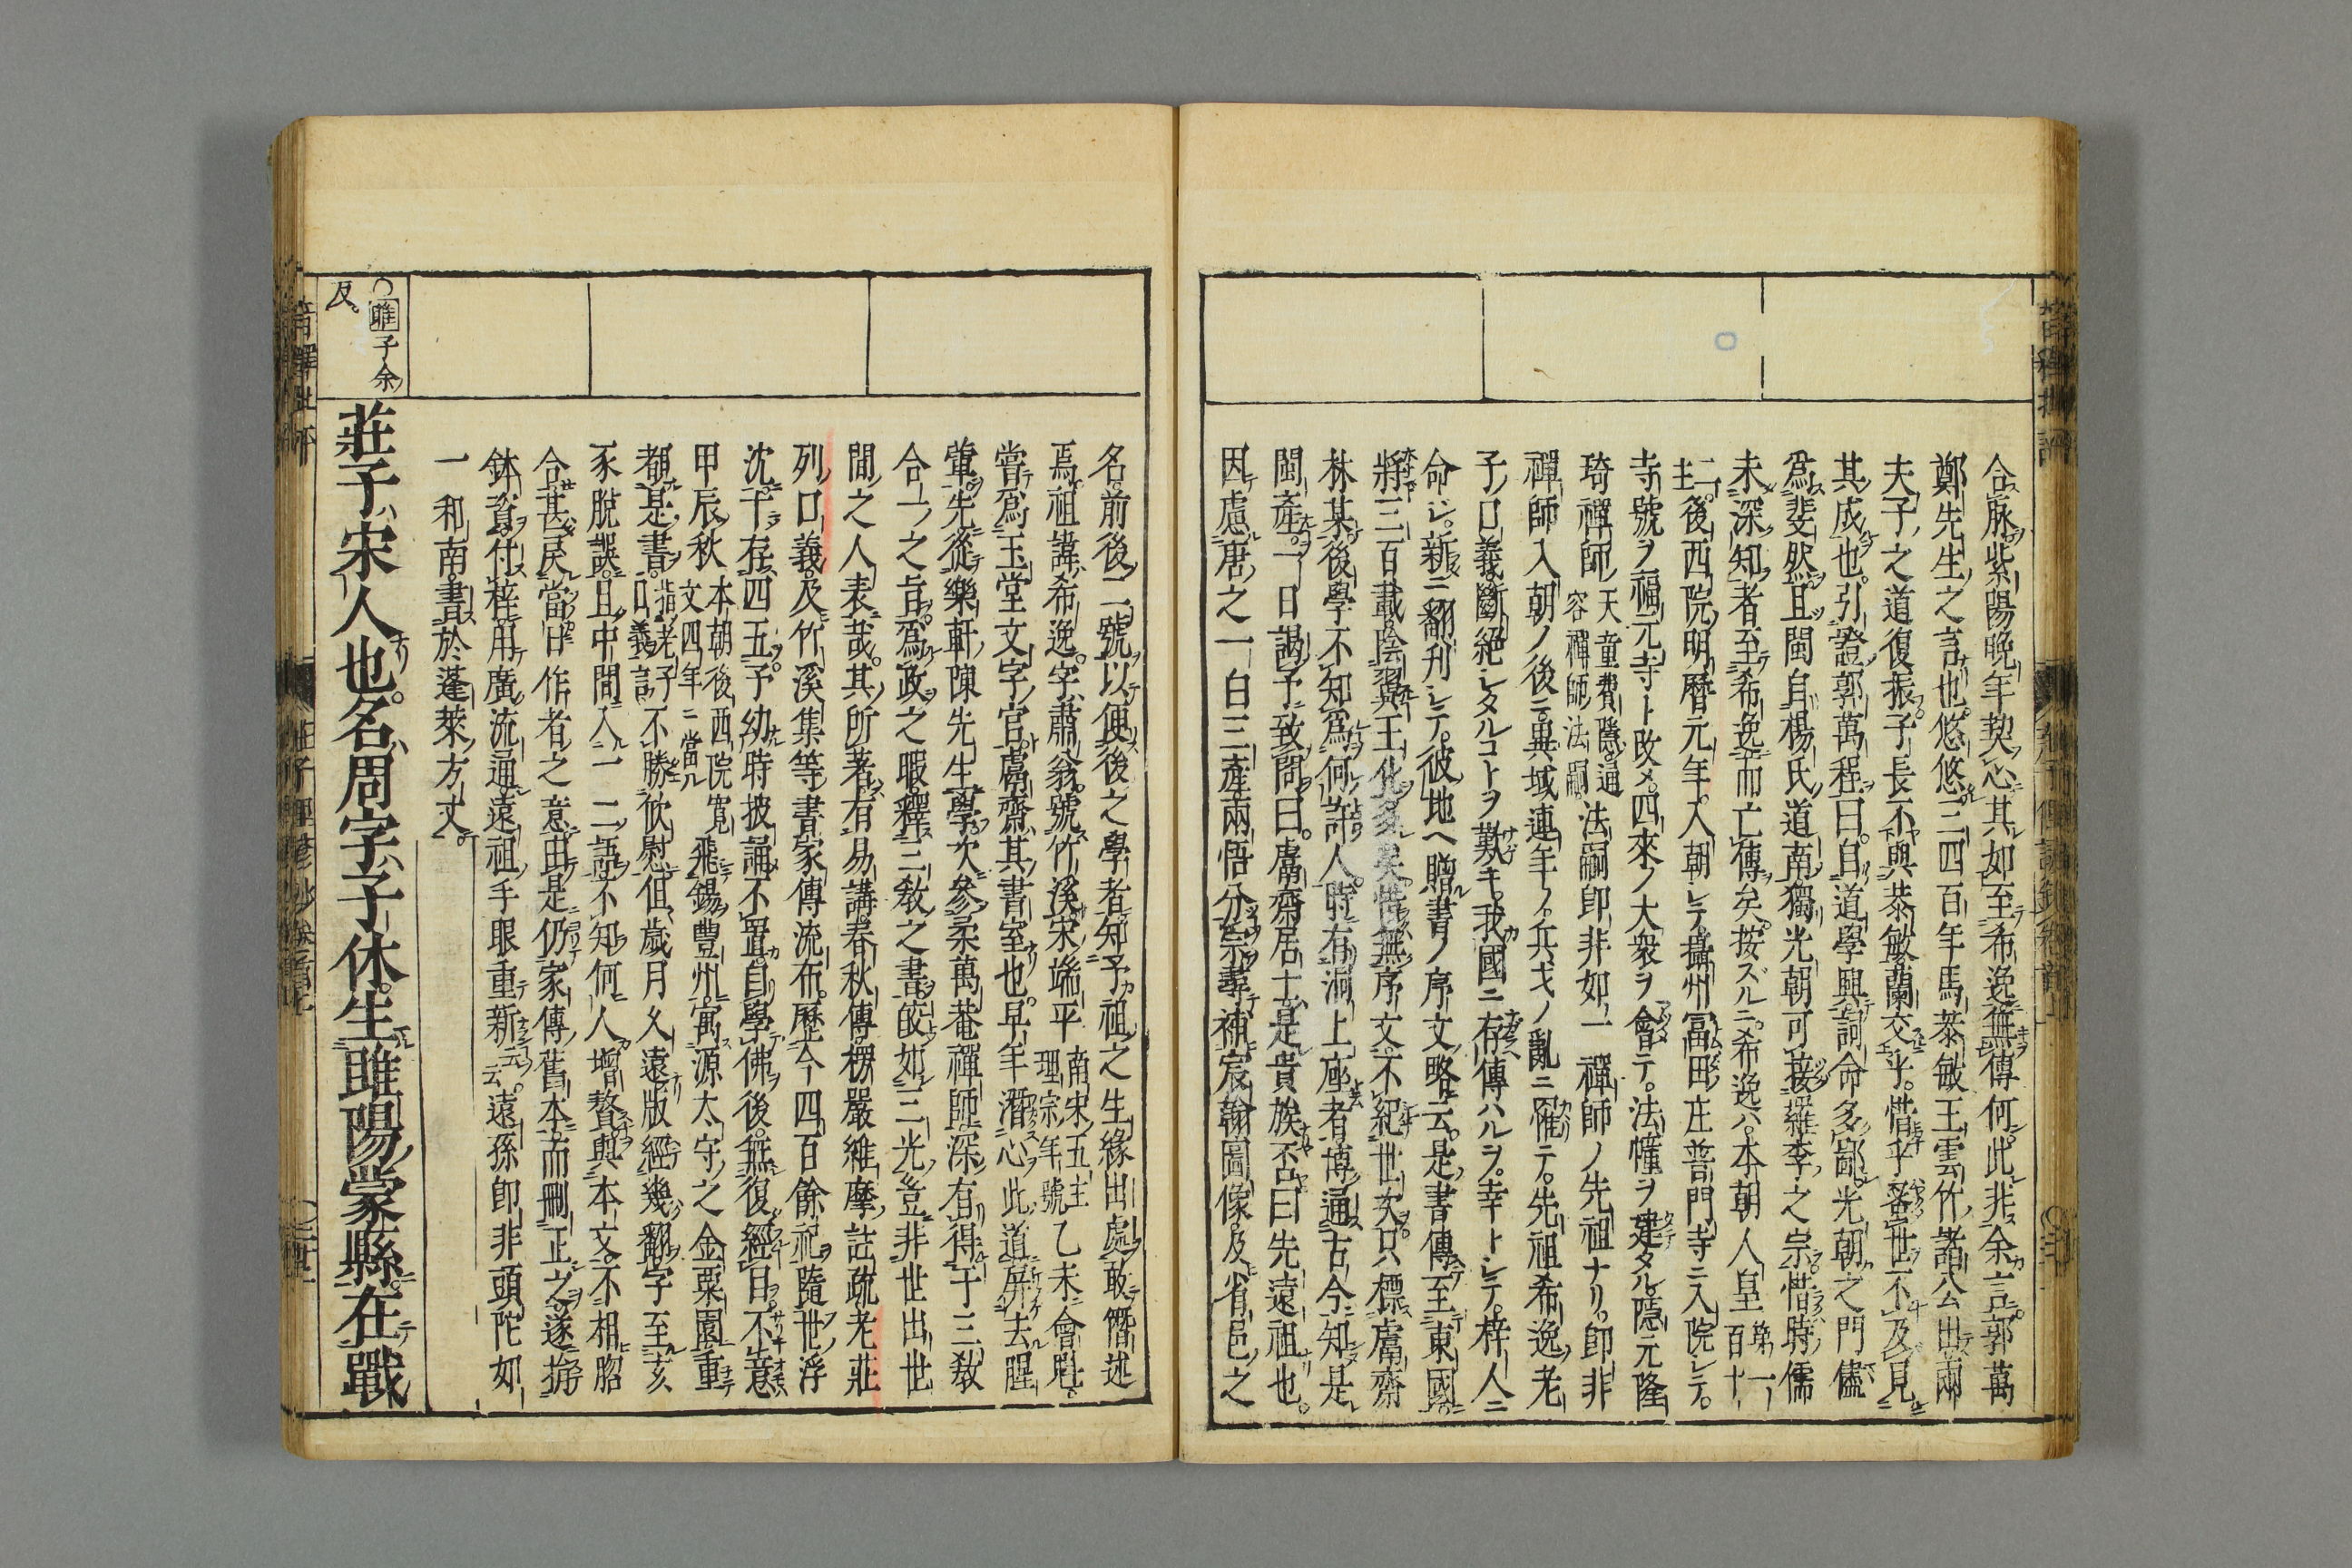 合脉紫陽晩年契心其如至希逸無傳何此非余言郭萬
鄭先生之言也悠悠三四百年馬恭敏王雲竹諸公出兩
夫子之道復振子長不與恭敏蘭交乎惜乎客世不及見
其成也引證郭萬程曰自道學興詞命多鄙光朝之門儘
爲斐然且閩自楊氏道南獨光朝可接羅李之宗惜時儒
未深知者至希逸而亡傳矣按ズルニ希逸ハ本朝人皇第一百十
二主後西院明曆元年入朝シテ攝州富田庄普門寺ニ入院シテ
寺號ヲ福元寺ト改メ四來ノ大衆ヲ會テ法幢ヲ建タル隱元隆
琦禪師天童費隱通容禪師法嗣法嗣即非如一禪師ノ先祖ナリ即非
禪師入朝ノ後ニ異域連年ノ兵戈ノ亂ニ罹テ先祖希逸老
子口義斷絕シタルコトヲ歎キ我國ニ存傳ハルヲ幸トシテ梓人ニ
命シ新ニ翻刊シテ彼地ヘ贈書ノ序文略云是書傳至東國
將三百載陰翼王化多矣惜無序文不紀世次只標鬳齋
林某後學不知爲何許人時有洞上座者博通古今知是
閩產一日謁予致問曰鬳齋居士是貴族否曰先遠祖也
因慮唐之一白三產兩悟分宗尋補宸翰圖像及省邑之
名前後二號以便後之學者知予祖之生緣出處敢僭述
焉祖諱希逸字肅翁號竹溪宋端平南宋五主理宗年號乙未會魁
嘗爲玉堂文字官鬳齋其書室也早年潛心此道屏去腥
葷先從樂軒陳先生學次參柔萬菴禪師深有得于三敎
合一之旨爲政之暇釋三敎之書皎如三光豈非世出世
間之人表哉其所著有易講春秋傳楞嚴維摩註疏老莊
列口義及竹溪集等書家傳流布歷今四百餘祀隨世浮
沈十存四五予幼時披誦不置自學佛後無復經目不意
甲辰秋本朝後西院寬文四年ニ當ル飛錫豐州寓源太守之金粟園重
都是書指老子口義言不勝忻慰但歲月久遠版經幾翻字至亥
豕脫誤且中間入一二語不知何人增贅與本文不相脗
合甚戾當日作者之意由是仍家傳舊本而刪正之遂捐
鉢資付梓用廣流通遠祖手眼重新云云遠孫即非頭陀如
一和南書於蓬萊方丈
○睢子余
反
莊子宋人也名周字子休生睢陽蒙縣在戰